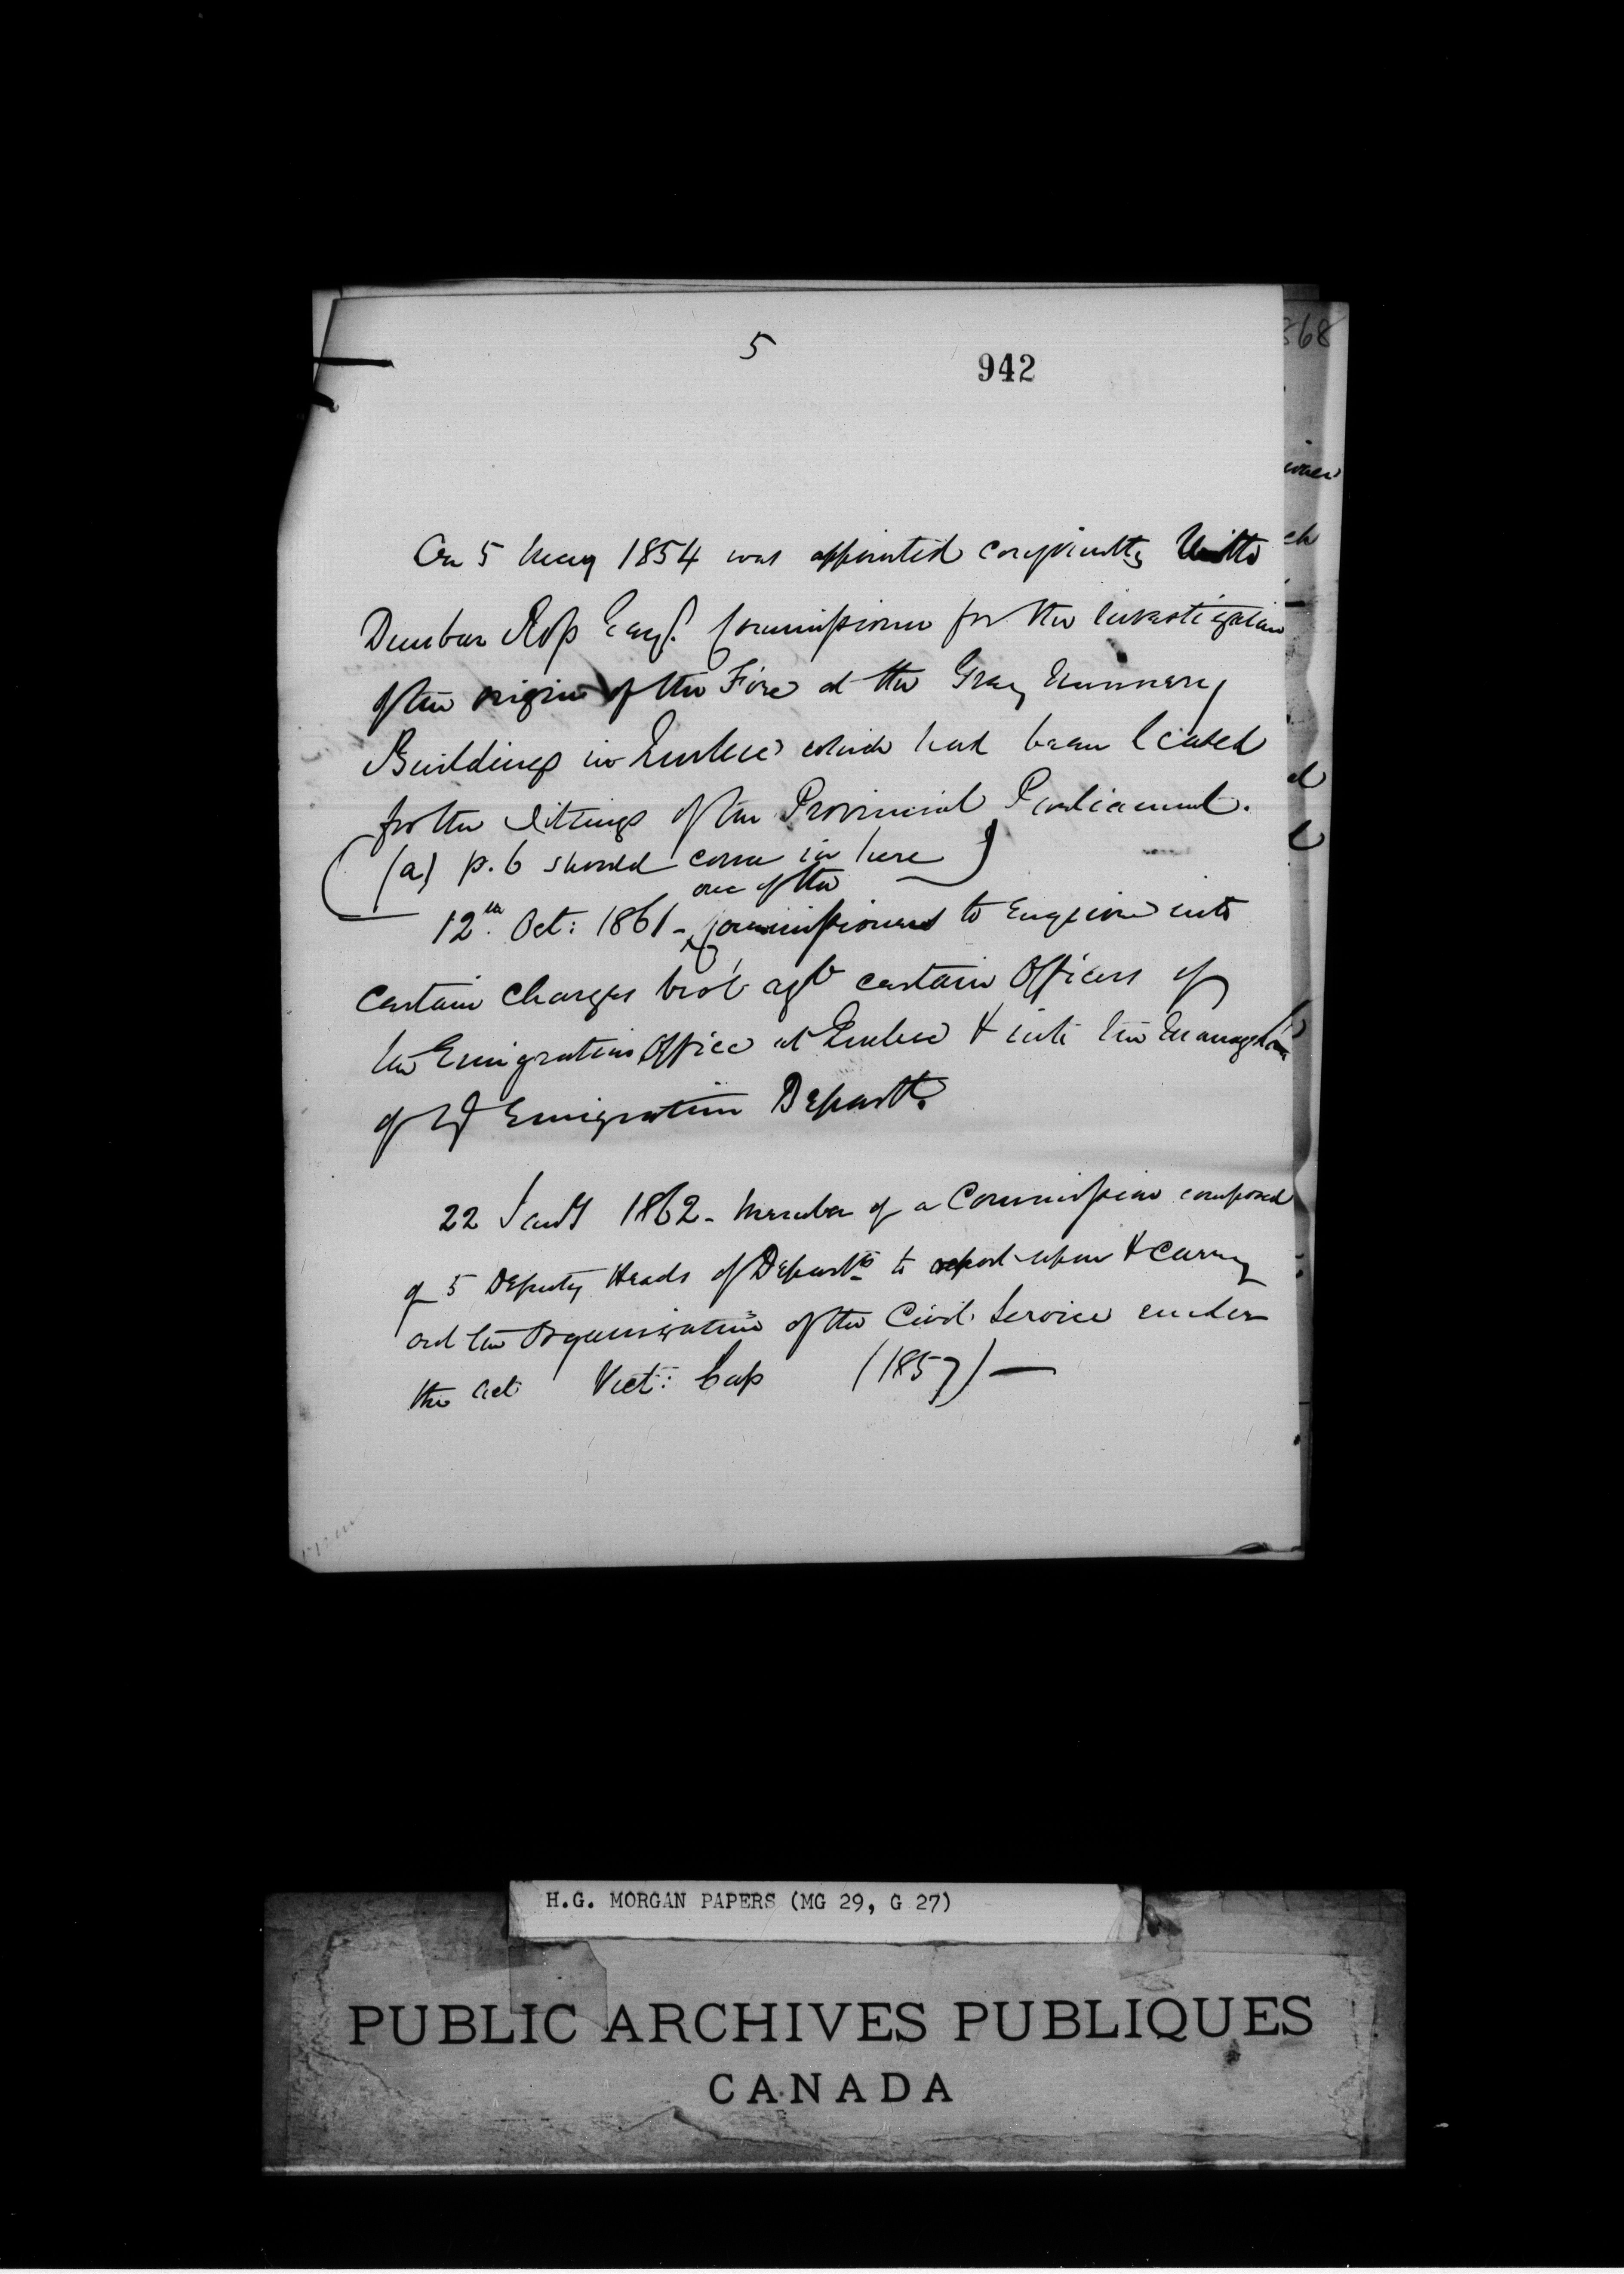 5
942
868
On 5 May 1854 was appointed conjointly with
Dunbar Ross Esq. Commissioner for the investigation
of the origin of the Fire at the Gray Nunnery
Buildings in Quebec which had been leased
for the sittings of the Provincial Parliament.
(a) p. 6 should come in here)
one of the
12th Oct: 1861 - Commissioners to Enquire into
certain charges bro't agt certain Officers of
the Emigration Office at Quebec & into the Managem
of Emigration Departt.
22 Jany 1862 - Member of a Commission composed
of 5 Deputy Heads of Departts to report upon & carry
out the Organization of the Civil Service under
the Act Vict: Cap (1857) —
H.G. MORGAN PAPERS (MG 29, G 27)
PUBLIC ARCHIVES PUBLIQUES
CANADA